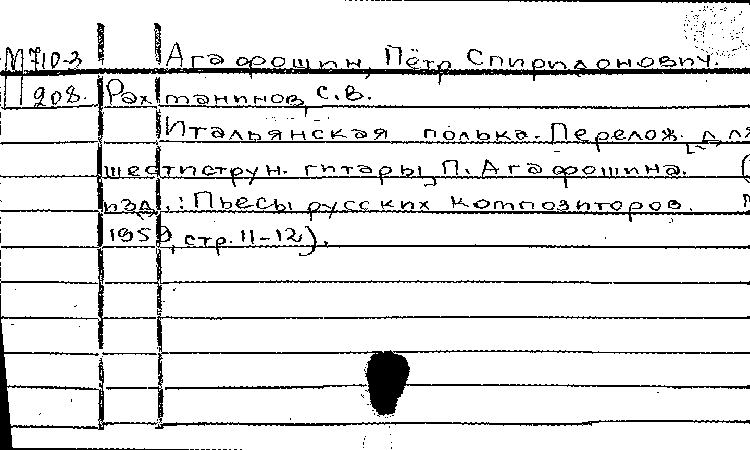 М710-3 Агафошин, Пётр Спиридонович.
П 208. Рахманинов, С.В.
Итальянская полька. Перелож. для
шестиструн. гитары П. Агафошина. (
изд.: Пьесы русских композиторов. М
1959, стр. 11-12).